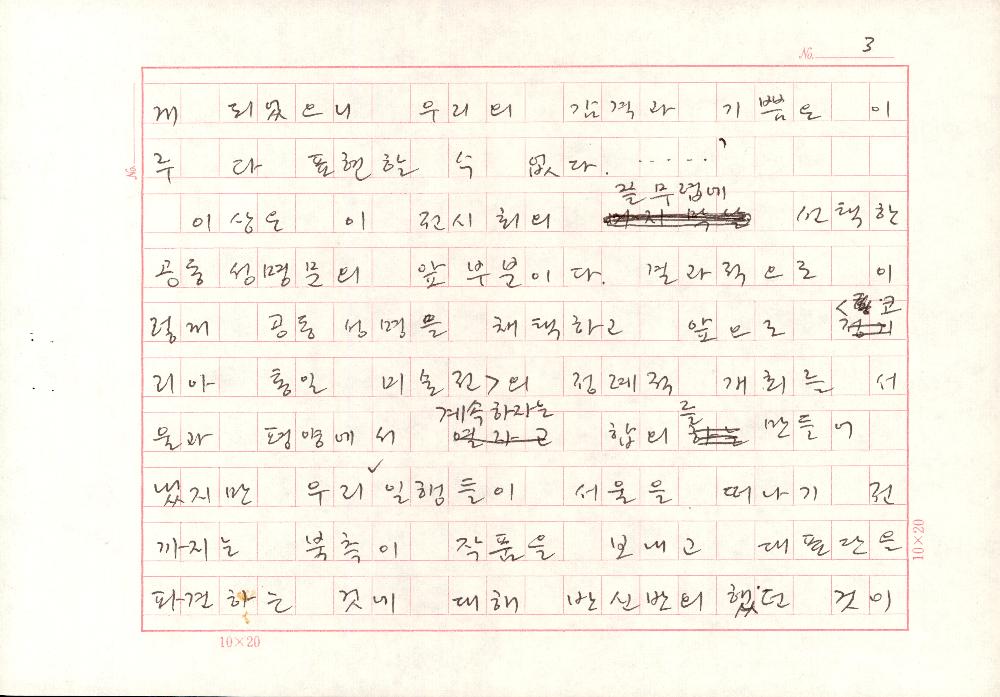 No. 3
게 되었으니 우리의 감격과 기쁨은 이
루 다 표현할 수 없다. ······"
끝무렵에
이상은 이 전시회의 마지막날 선택한
공동성명문의 앞부분이다. 결과적으로 이
렇게 공동성명을 채택하고 앞으로 <코
리아 통일 미술전>의 정례적 개최를 서
계속하자는 를
울과 평양에서 열자고 합의하는 만들어
냈지만 우리 일행들이 서울을 떠나기 전
까지는 북측이 작품을 보내고 대표단을
파견하는 것에 대해 반신반의했던 것이
No.
10×20
10×20